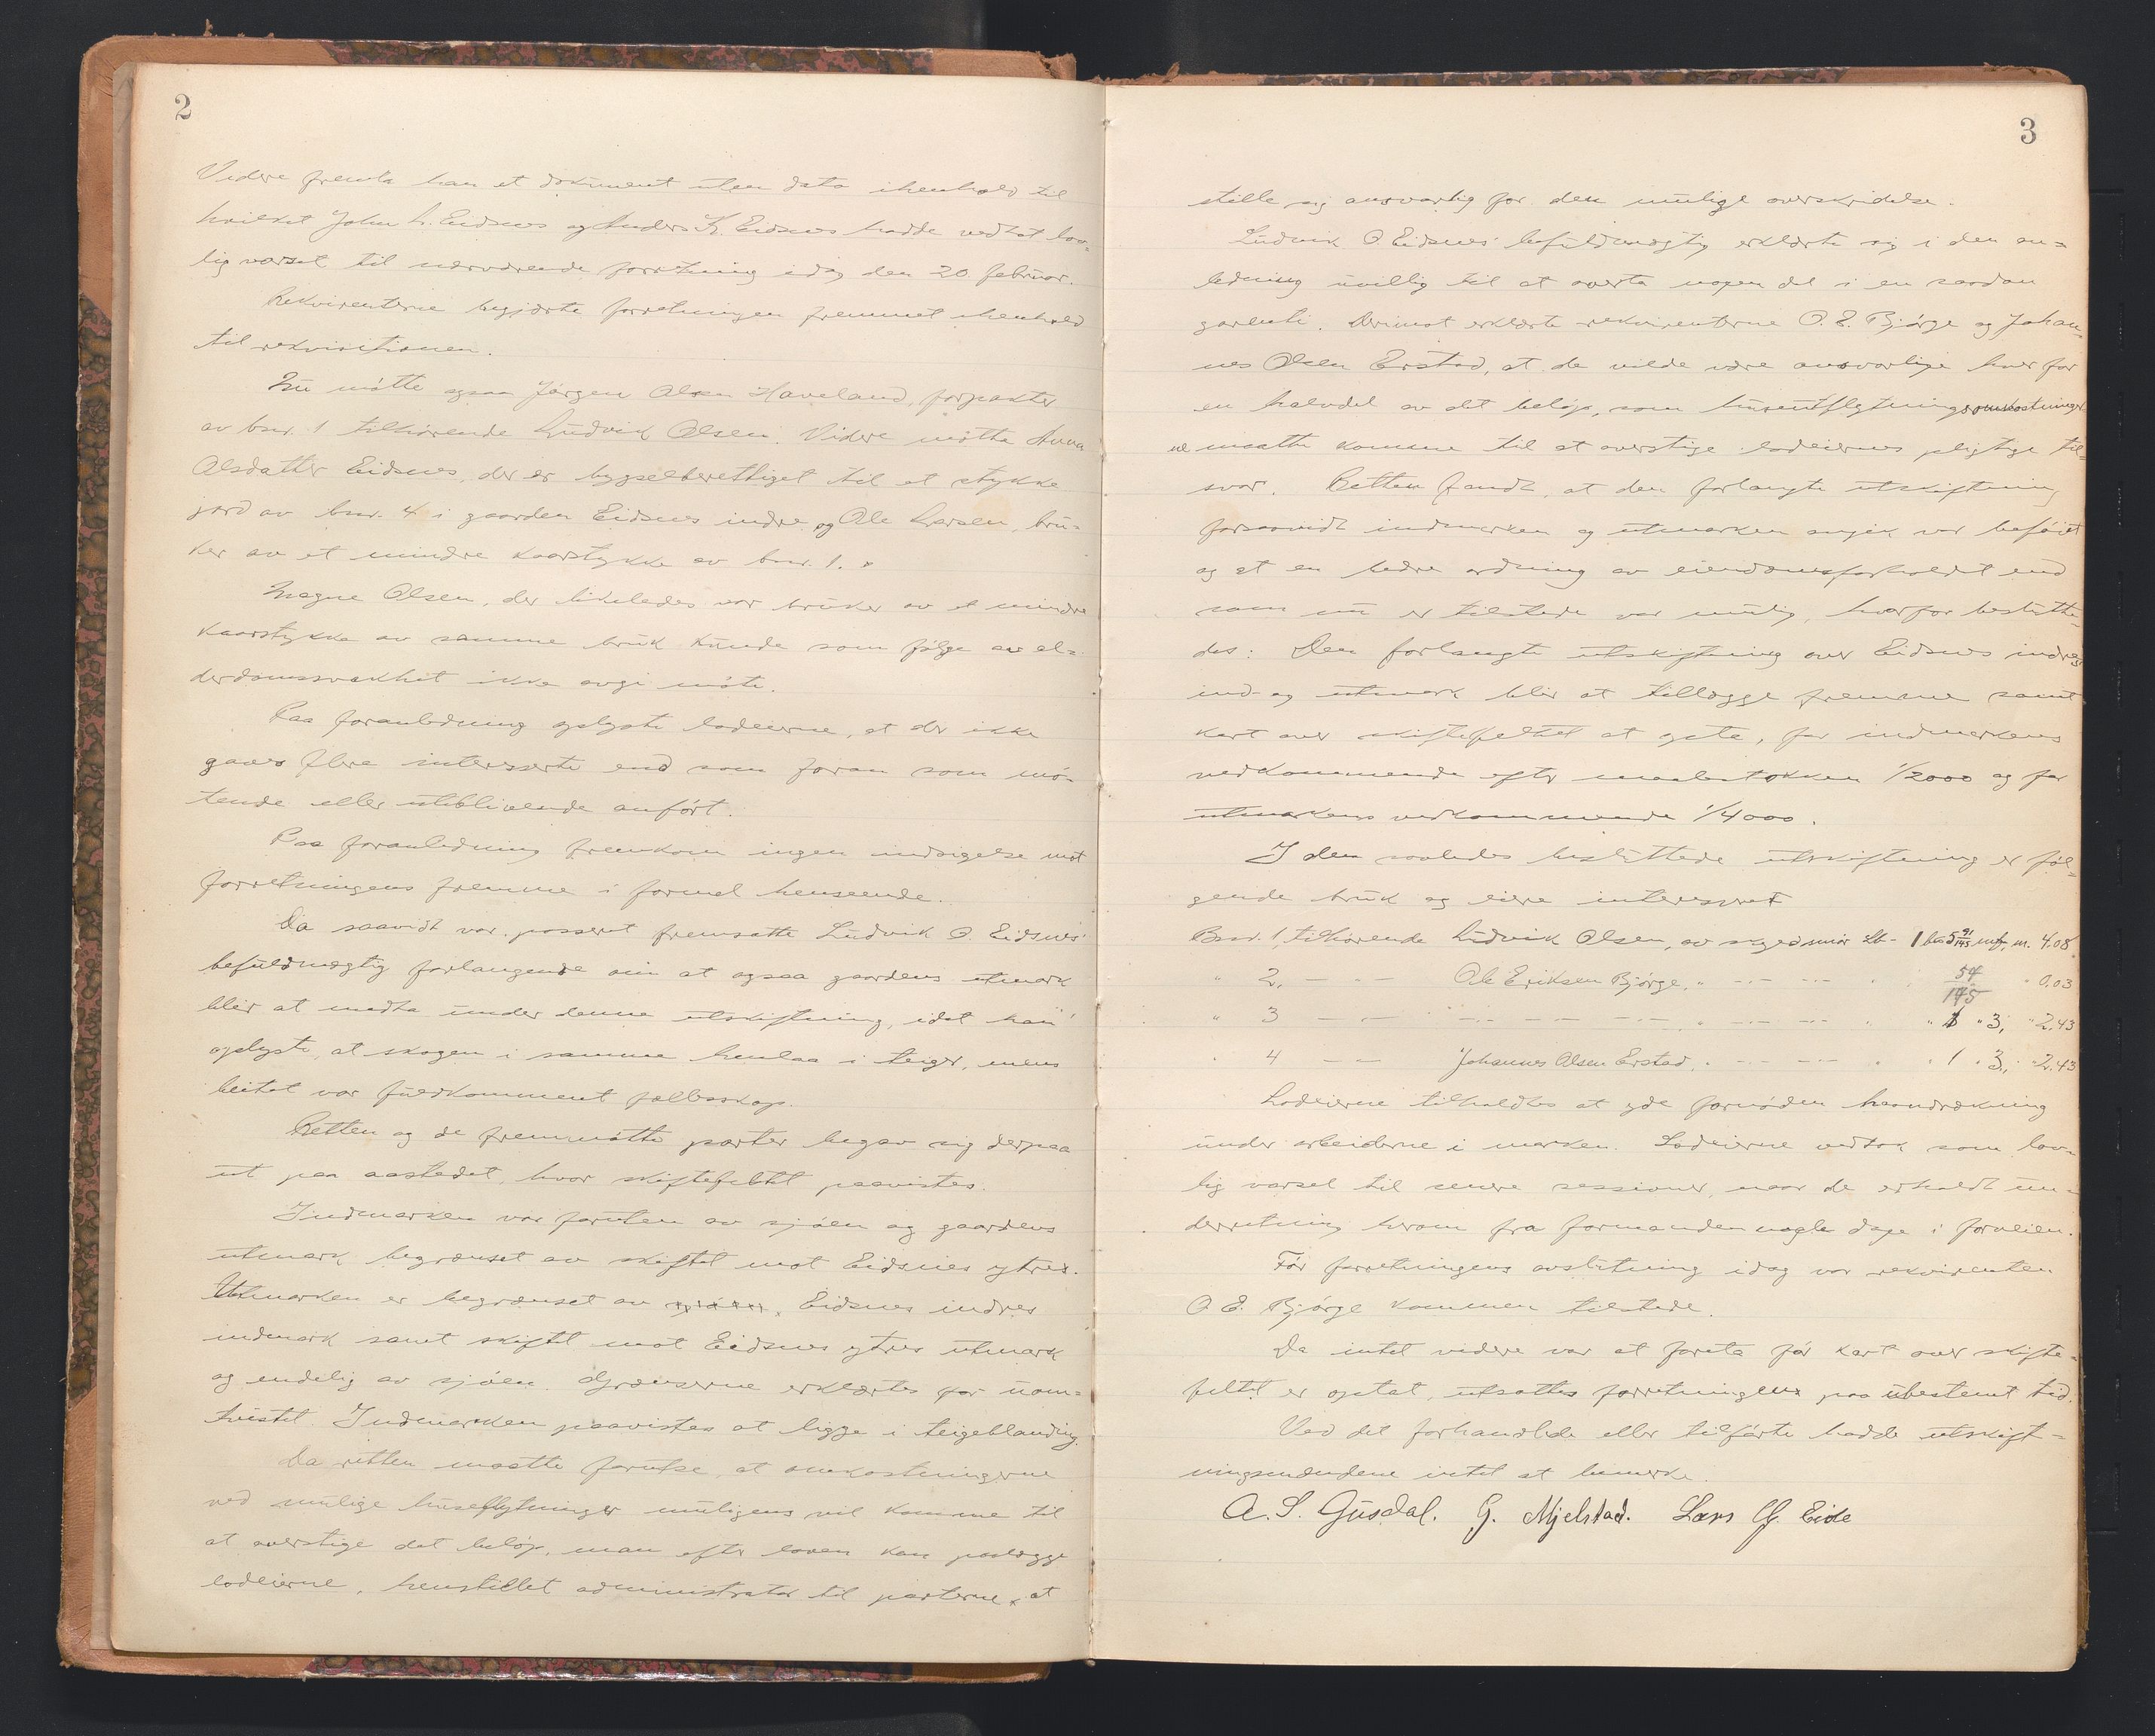 2
Videre fremla han et dokument uten dato ihenhold til
hvilket John L. Eidsnes og Anders K. Eidsnes hadde vedtat lov-
lig varsel til nærværende forretning idag den 20. februar.
Rekvirenterne begjærte forretningen fremmet ihenhold
til rekvisitionen.
Nu møtte ogsaa Jørgen Olsen Haveland, forpakter
av bnr. 1 tilhørende Ludvik Olsen. Videre møtte Anna
Olsdatter Eidsnes, der er bygselberettiget til et stykke
jord av bnr. 4 i gaarden Eidsnes indre og Ole Larsen, bru-
ker av et mindre kaarstykke av bnr. 1.
Magne Olsen, der likeledes var bruker av et mindre
kaarstykke av samme bruk kunde som følge av al-
derdomssvakhet ikke avgi møte.
Paa foranledning oplyste lodeierne, at der ikke
gaves flere interesserte end som foran som mø-
tende eller uteblivende anført.
Paa foranledning fremkom ingen indsigelse mot
forretningens fremme i formel henseende.
Da saavidt var passeret fremsatte Ludvik O. Eidsnes'
befuldmægtig forlangende om at ogsaa gaardens utmark
blir at medta under denne utskiftning, idet han
oplyste, at skogen i samme henlaa i teiger, mens
beitet var fuldkomment fællesskap.
Retten og de fremmøtte parter begav sig derpaa
ut paa aastedet, hvor skiftefeltet paavistes.
Indmarken var foruten av sjøen og gaardens
utmark begrænset av skiftet mot Eidsnes ytre.
Utmarken er begrænset av Eidsnes indres
indmark samt skiftet mot Eidsnes ytres utmark
og endelig av sjøen. Grænserne erklærtes for uom-
tvistet. Indmarken paavistes at ligge i teigeblanding.
Da retten maatte forutse, at omkostningerne
ved mulige huseflytninger muligens vil komme til
at overstige det beløp, man efter loven kan paalægge
lodeierne, henstillet administrator til parterne at
3
stille sig ansvarlig for den mulige overskridelse.
Ludvik O. Eidsnes' befuldmægtig erklærte sig i den an-
ledning uvillig til at overta nogen del i en saadan
garanti. Derimot erklærte rekvirenterne O. E. Bjørge og Johan-
nes Olsen Erstad, at de vilde være ansvarlige hver for
en halvdel av det beløp, som husutflytningsomkostninger
ne maatte komme til at overstige lodeiernes pligtige til-
svar. Retten fandt, at den forlangte utskiftning
forsaavidt indmarken og utmarken angik var beføiet
og at en bedre ordning av eiendomsforholdet end
som nu er tilstede var mulig, hvorfor beslutte-
des: Den forlangte utskiftning over Eidsnes indres
ind- og utmark blir at tillægge fremme samt
kart over skiftefeltet at opta, for indmarkens
vedkommende efter maalestokken 1/2000 og for
utmarkens vedkommende 1/4000.
I den saaledes besluttede utskiftning er føl-
gende bruk og eiere interesseret
Bnr. 1, tilhørende Ludvik Olsen, av 1 m. 4.08
" 2, — — Ole Eriksen Bjørge, " — — 54/145 " 0.03
" 3 — — " — — — — " 1 " 3, " 2.43
" 4 — — Johannes Olsen Erstad, " — — " 1 " 3, " 2.43
Lodeierne tilholdtes at yde fornøden haandrækning
under arbeiderne i marken. Lodeierne vedtok som lov-
lig varsel til senere sessioner, naar de erholdt un-
derretning herom fra formanden nogle dage i forveien.
Før forretningens avslutning idag var rekvirenten
O. E. Bjørge kommen tilstede.
Da intet videre var at foreta før kart over skifte-
feltet er optat, utsattes forretningen paa ubestemt tid.
Ved det forhandlede eller tilførte hadde utskift-
ningsmændene intet at bemerke.
A. S. Gusdal. G. Mjelstad. Lars G. Eide